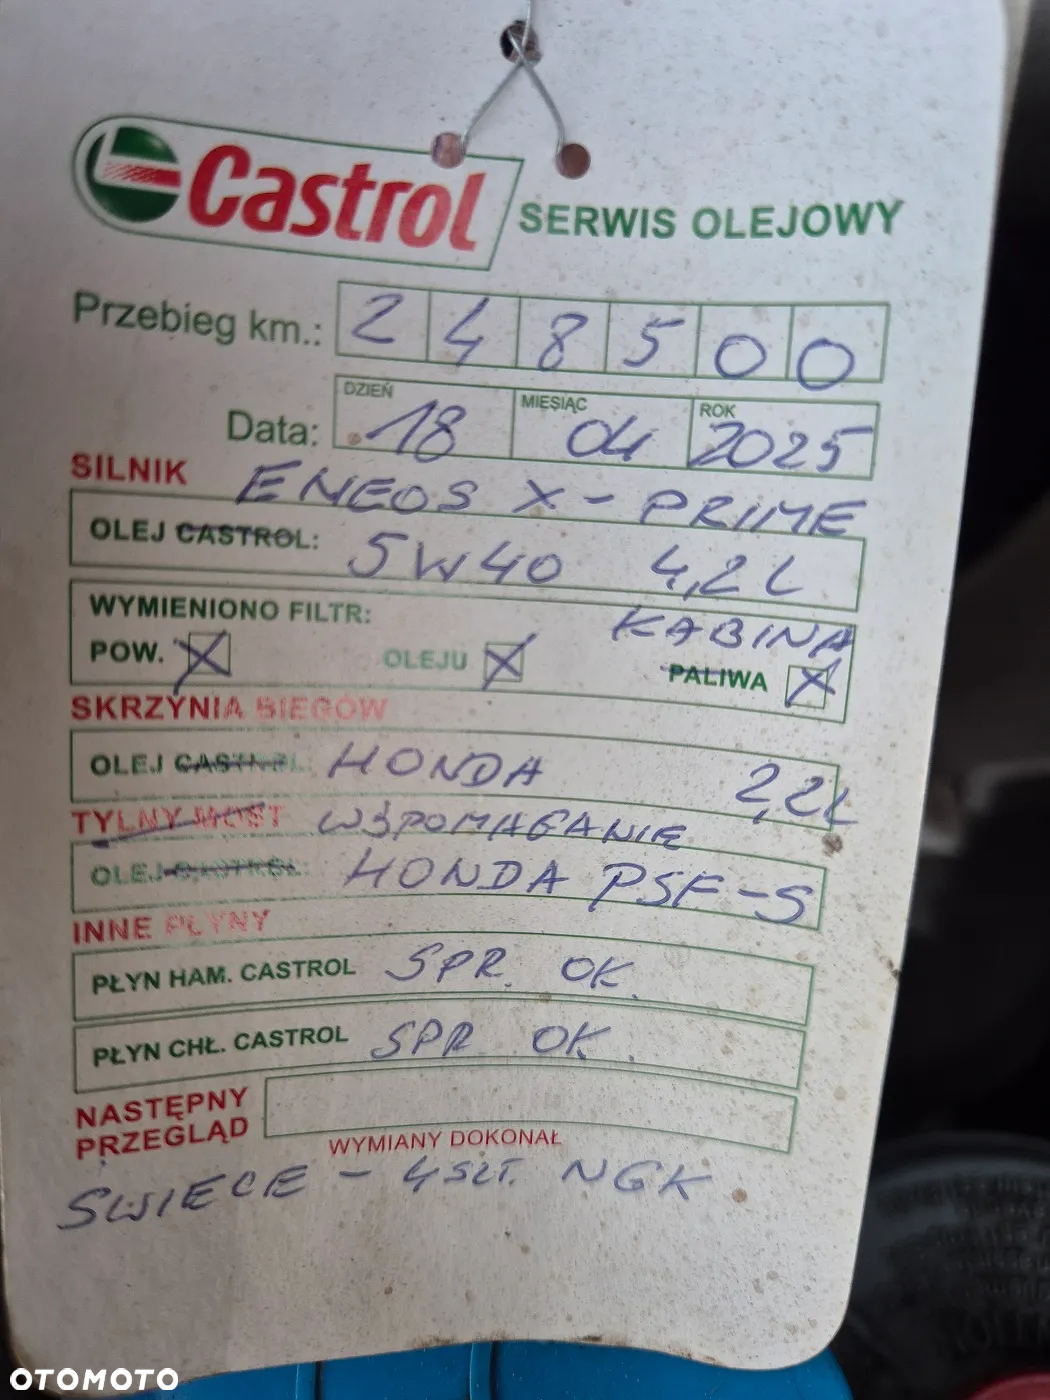 Castrol SERWIS OLEJOWY
Przebieg km.: 2 4 8 5 0 0
DZIEŃ MIESIĄC ROK
Data: 18 04 2025
SILNIK ENEOS X - PRIME
OLEJ CASTROL: 5W40 4,2L
WYMIENIONO FILTR: KABINA
POW. X OLEJU X PALIWA X
SKRZYNIA BIEGÓW
OLEJ CASTROL: HONDA 2,2L
TYLNY MOST WSPOMAGANIE
OLEJ CASTROL: HONDA PSF-S
INNE PŁYNY
PŁYN HAM. CASTROL SPR. OK.
PŁYN CHŁ. CASTROL SPR OK.
NASTĘPNY
PRZEGLĄD
WYMIANY DOKONAŁ
ŚWIECE - 4 SZT. NGK
OTOMOTO